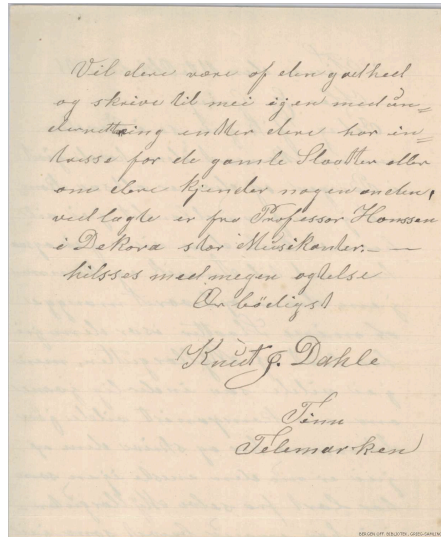 Vil dere være of den godhed
og skrive til mei igen med ün=
derretting entter dere har in=
trisse for de gamle Slaatter eller
om dere kjender nogen anden,
vedlagte er fra Professor Hanssen
i Dekora stor Musikanter. —
hilsses med megen agtelse
Ær bödigst
Knut J. Dahle
Tinn
Telemarken
BERGEN OFF. BIBLIOTEK, GRIEG-SAMLINGEN